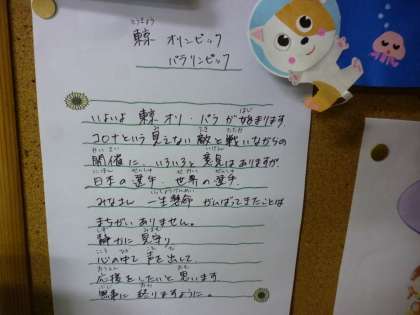 とうきょう
東京 オリンピック
パラリンピック
いよいよ 東京 オリ・パラ が 始まります
コロナという 見えない 敵と 戦いながらの
開催に、いろいろと 意見は ありますが
日本の 選手・世界の 選手、
みなさん 一生懸命 がんばってきたことは
まちがい ありません。
静かに 見守り
心の中で 声を出して
応援を したいと 思います
無事に 終りますように。